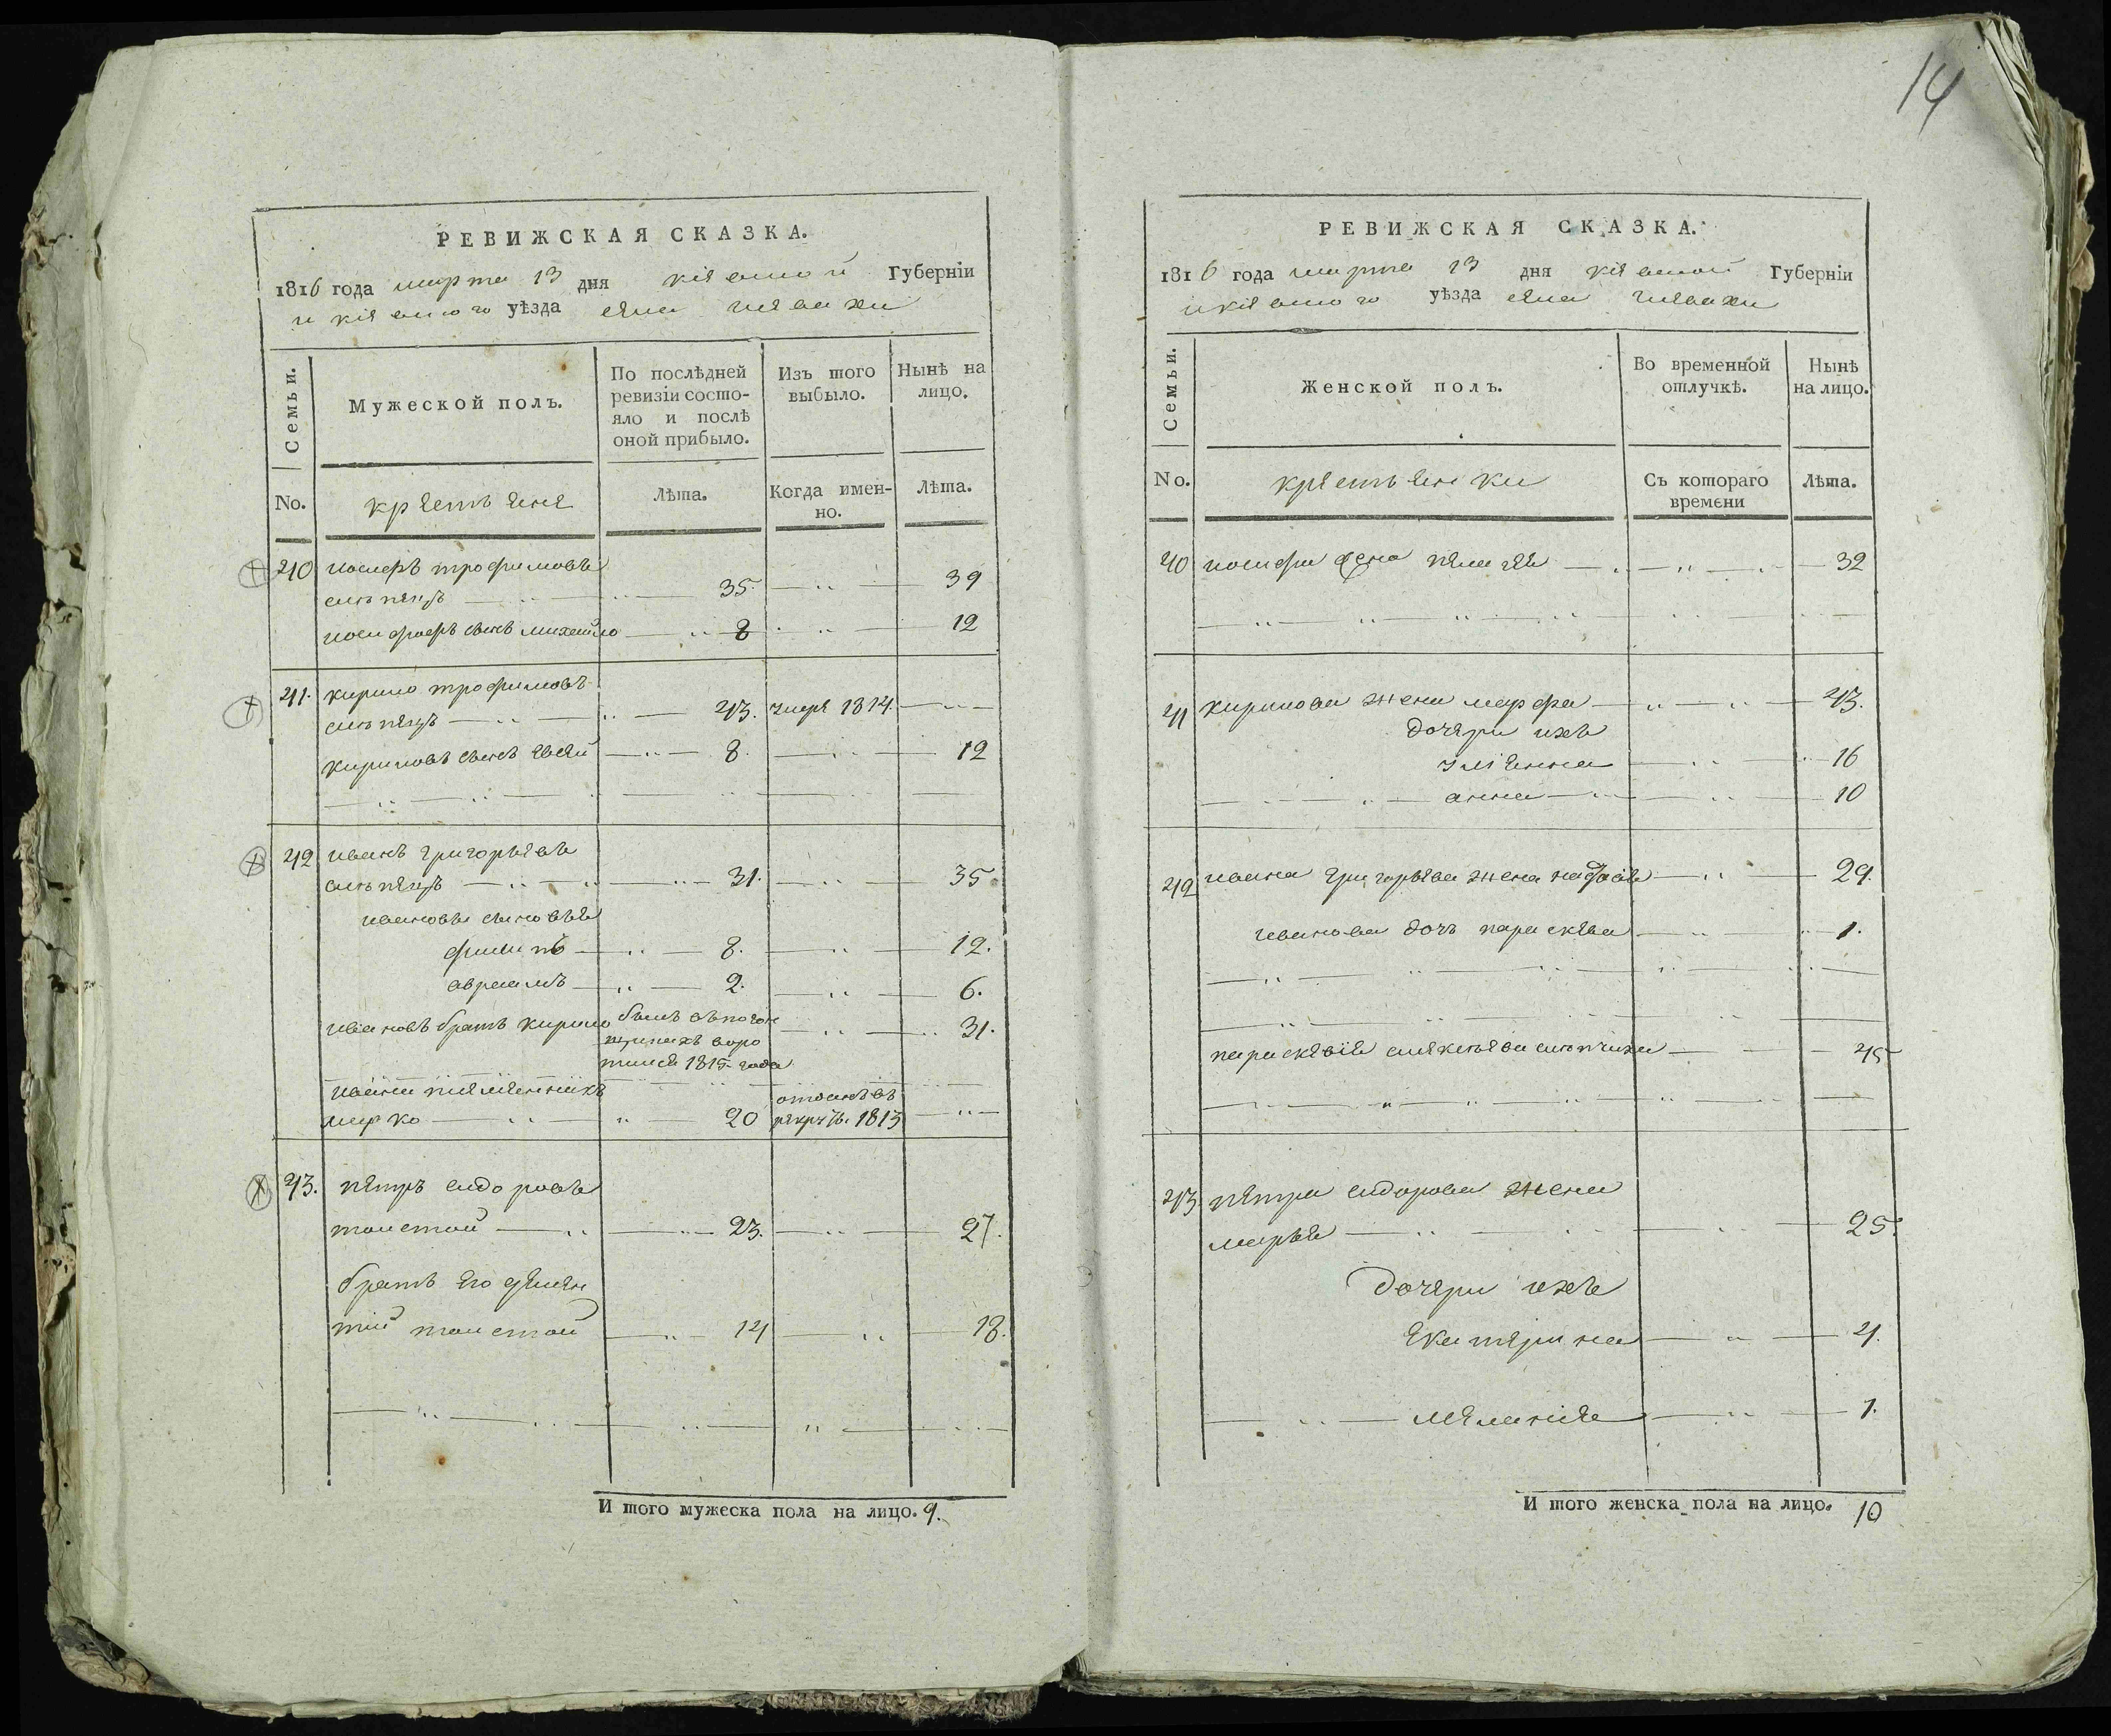 14
РЕВИЖСКАЯ СКАЗКА.
1816 года марта 13 дня кіевской Губерніи
и кіевского уѣзда села глевахи
Семьи.
Мужеской полъ.
По послѣдней ревизіи состояло и послѣ оной прибыло.
Изъ того выбыло.
Нынѣ на лицо.
No.
крестьяне
Лѣта.
Когда именно.
Лѣта.
40 иосифъ трофимовъ
слепецъ 35. 39
иосифовъ сынъ михайло 8 12
41. кирило трофимовъ
слепецъ 43. умре 1814.
кириловъ сынъ евсей 8. 12
42 иванъ григорьевъ
слепецъ 31. 35
ивановы сыновья
филипъ 8. 12.
авраамъ 2. 6.
ивановъ братъ кирило 31.
1815 года
ивана племянникъ отданъ въ
марко 20 рекруты 1813
43. петръ сидоровъ
толстой 23. 27.
братъ его
тий толстой 14 18.
И того мужеска пола на лицо. 9.
РЕВИЖСКАЯ СКАЗКА.
1816 года марта 13 дня кіевской Губерніи
и кіевского уѣзда села глевахи
Семьи.
Женской полъ.
Во временной отлучкѣ.
Нынѣ на лицо.
No.
крестьянки
Съ котораго времени
Лѣта.
40 иосифа жена пелагея 32
41 кирилова жена марфа 43.
дочери ихъ
улiянна 16
анна 10
42 ивана григорьева жена 29.
иванова дочъ параскева 1.
параскевія слепчиха 45
43 петра сидорова жена
марья 25.
дочери ихъ
екатерина 4.
меланія 1.
И того женска пола на лицо. 10